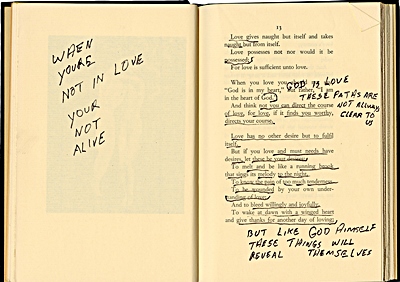 WHEN
YOURE
NOT IN LOVE
YOUR
NOT
ALIVE
13
Love gives naught but itself and takes
naught but from itself.
Love possesses not nor would it be
possessed;
For love is sufficient unto love.
When you love you
"God is in my heart," but rather, "I am
in the heart of God."
GOD IS LOVE
THESE PATHS ARE
NOT ALWAY
CLEAR TO
US
And think not you can direct the course
of love, for love, if it finds you worthy,
directs your course.
Love has no other desire but to fulfil
itself.
But if you love and must needs have
desires, let these be your desires:
To melt and be like a running brook
that sings its melody to the night.
To know the pain of too much tenderness.
To be wounded by your own under-
standing of love;
And to bleed willingly and joyfully.
To wake at dawn with a winged heart
and give thanks for another day of loving;
BUT LIKE GOD HIMSELF
THESE THINGS WILL
REVEAL THEMSELVES